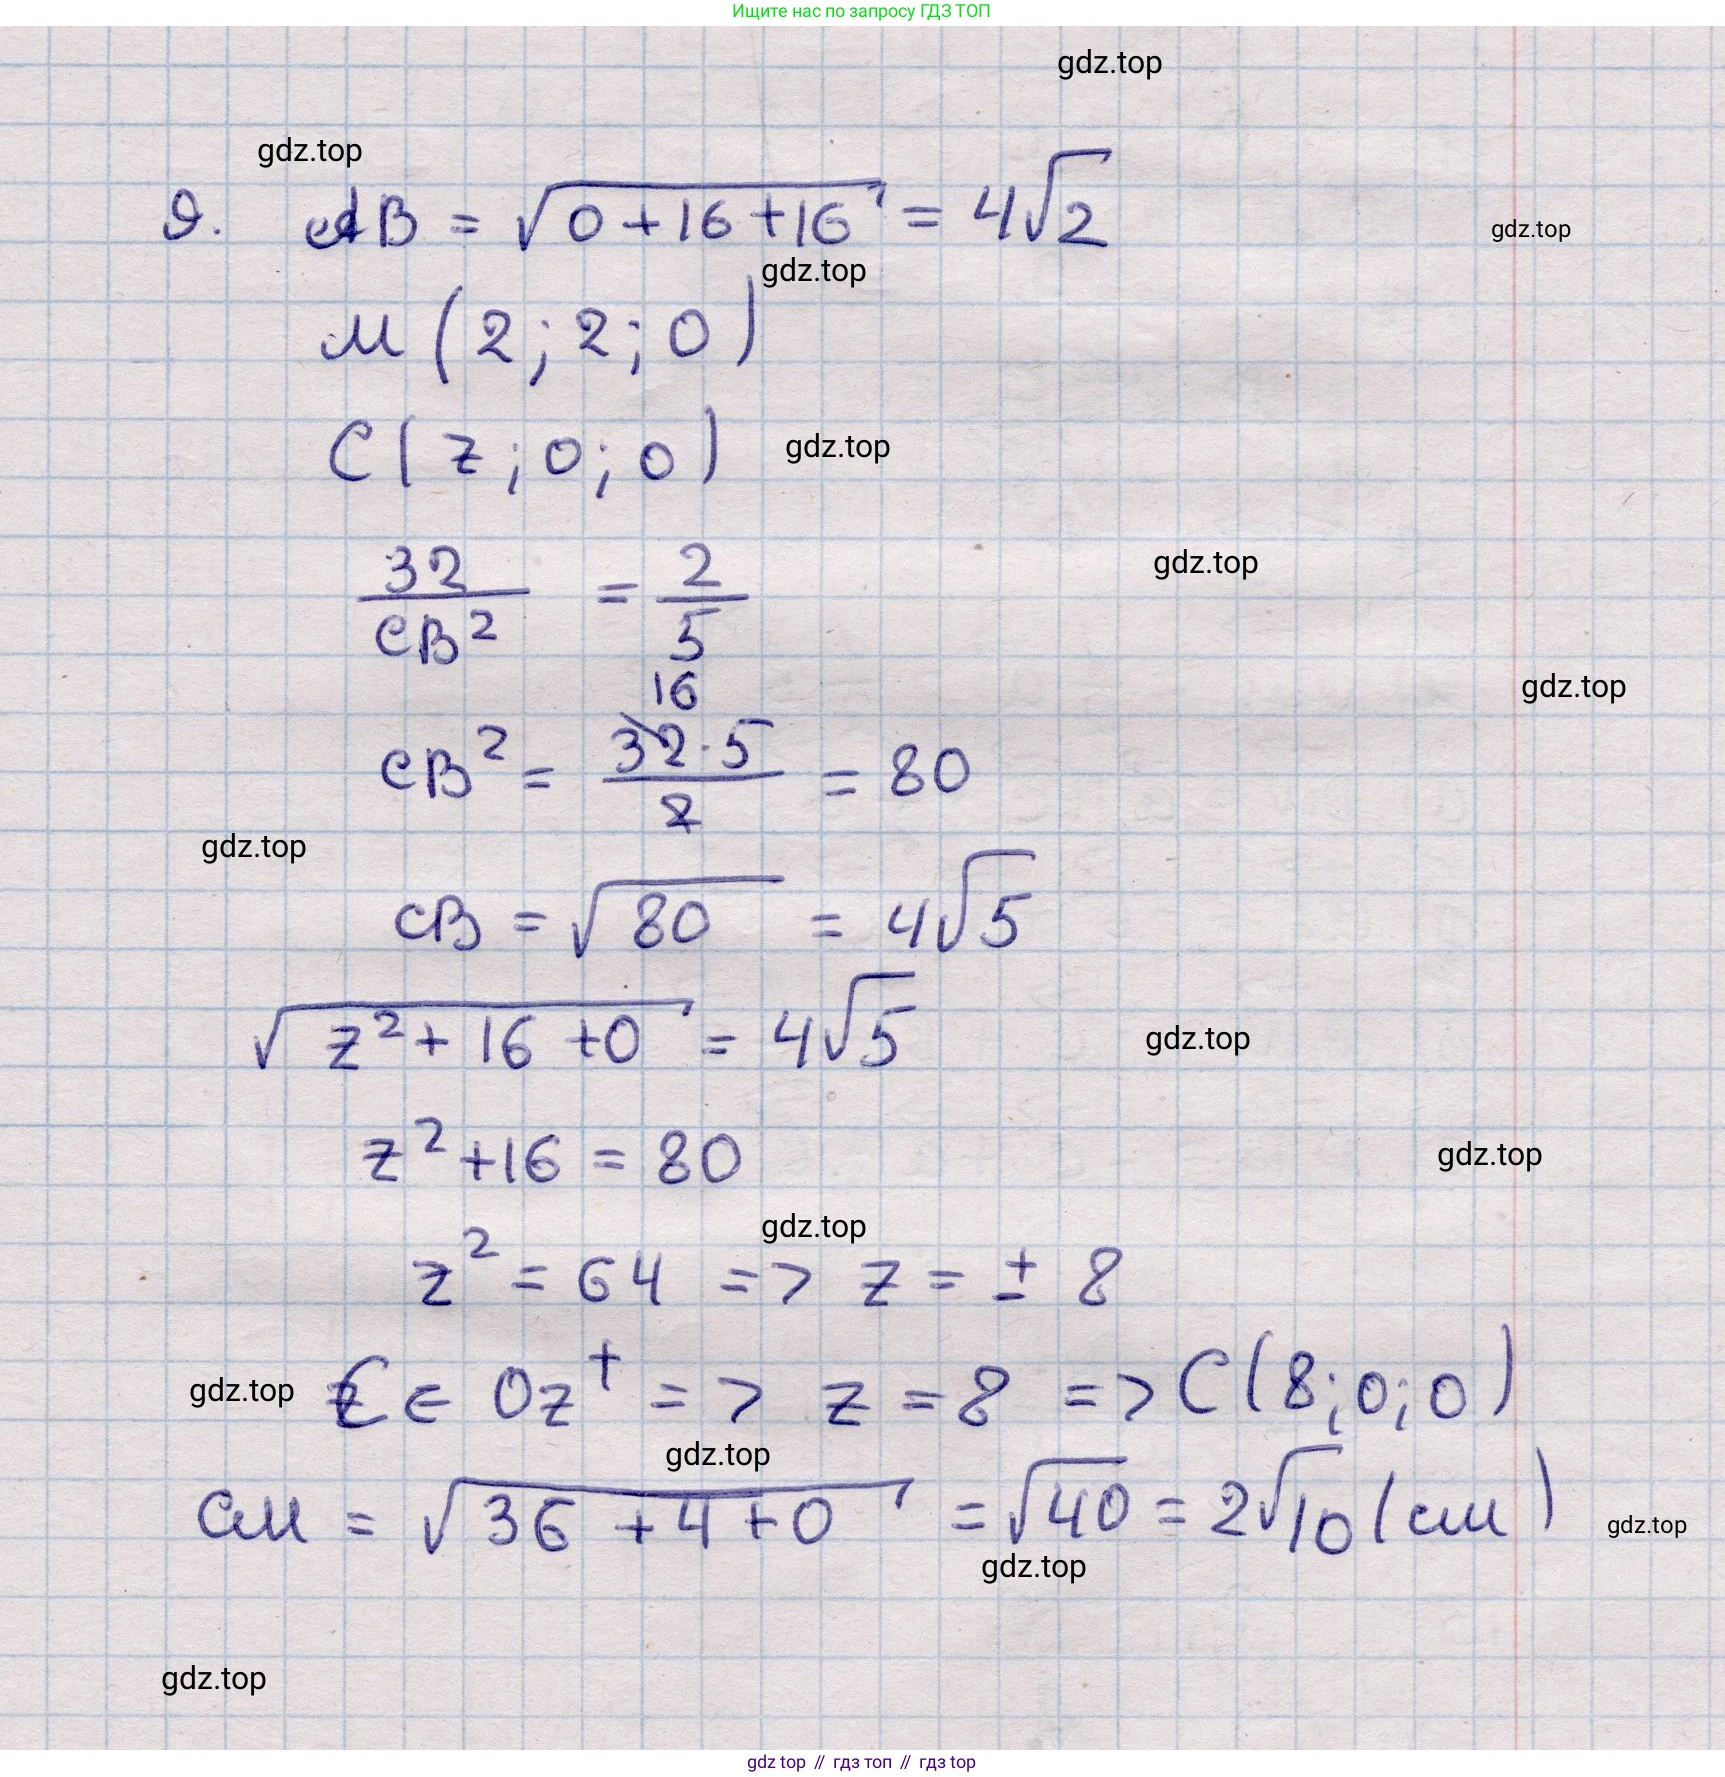 Ищите нас по запросу ГДЗ ТОП
gdz.top
gdz.top
9. AB = √(0+16+16) = 4√2
gdz.top
gdz.top
M (2; 2; 0)
C( z; 0; 0)
gdz.top
32/CB² = 2/5
gdz.top
16
gdz.top
CB² = 32·5/2 = 80
gdz.top
CB = √80 = 4√5
√(z²+ 16 +0) = 4√5
gdz.top
z² +16 = 80
gdz.top
gdz.top
z² = 64 => z = ± 8
gdz.top
C ∈ Oz⁺ => z = 8 => C(8;0;0)
gdz.top
CM = √(36 + 4 + 0) = √40 = 2√10 (см)
gdz.top
gdz.top
gdz.top
gdz top // гдз топ // гдз top